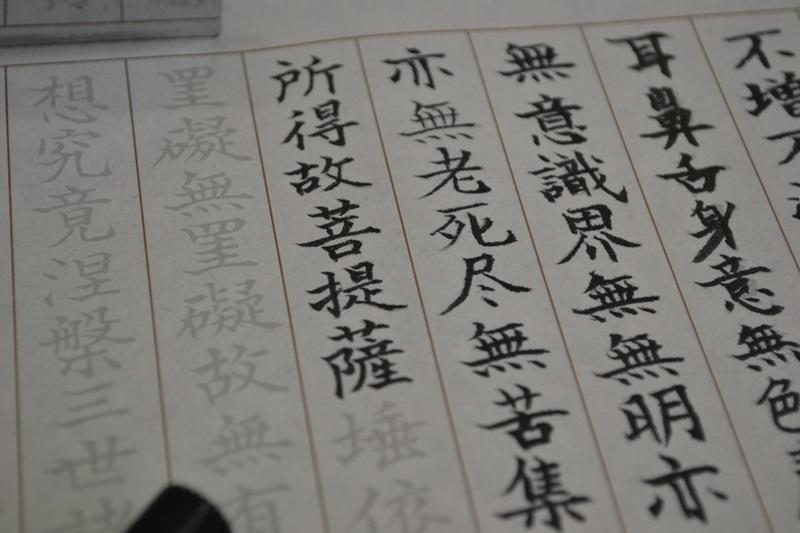 不増不
耳鼻舌身意無色
無意識界無無明亦
亦無老死尽無苦集
所得故菩提薩埵依
罣礙無罣礙故無有
想究竟涅槃三世諸